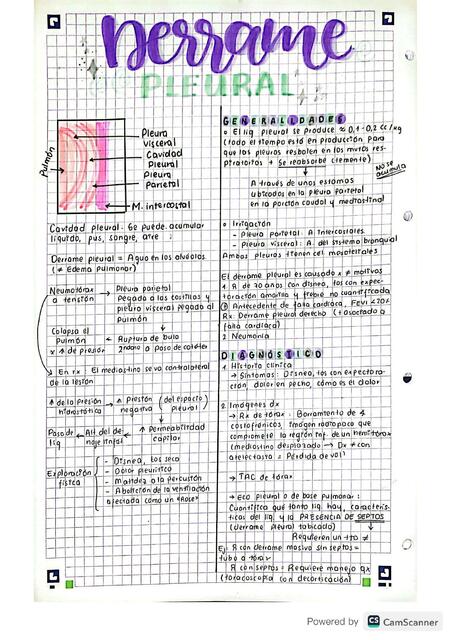 Derrame
PLEURAL
Pulmón
Pleura
visceral
Cavidad
Pleural
Pleura
Parietal
M. intercostal
Cavidad pleural: Se puede acumular
líquido, pus, sangre, aire
Derrame pleural = Agua en los alvéolos
(≠ Edema pulmonar)
Neumotórax → Pleura parietal
a tensión
Pegada a las costillas y
pleura visceral pegada al
Pulmón
Colapsa el
Pulmón ← Ruptura de bula
x ↑ de presión 2ndario a paso de catéter
→ En rx: El mediastino se va contralateral
de la lesión
↑ de la presión → ↑ Presión (del espacio)
hidrostática negativa pleural
Paso de ← Alt. del dre- ← ↑ Permeabilidad
liq naje linfal capilar
Exploración
física
- Disnea, tos seca
- Dolor pleurítico
- Matidez a la percusión
- Abolición de la ventilación
afectada como un "Roce"
GENERALIDADES
o El liq pleural se produce ≈ 0,1-0,2 cc/kg
(todo el tiempo está en producción para
que las pleuras resbalen en los mvtos res-
piratorios + Se reabsorbe (lemente)
No se
acumula
A través de unos estomas
ubicados en la pleura parietal
en la porción caudal y mediastinal
o Irrigación
- Pleura parietal: A Intercostales
- Pleura visceral: A. del sistema bronquial
Ambas pleuras tienen cel mesoteliales
El derrame pleural es causado x ≠ motivos
1. R de 70 años con disnea, tos con expec-
toración amarilla y fiebre no cuantificada
Antecedente de falla cardíaca, FEVI <20%
Rx: Derrame pleural derecho (+ asociado a
falla cardíaca)
2 Neumonía
DIAGNÓSTICO
1 Historia clínica
→ Síntomas: Disnea, tos con expectora-
ción, dolor en pecho, cómo es el dolor
2. Imágenes dx
→ Rx de tórax: Borramiento de <
costofrénicos, imagen radiopaca que
compromete la región inf. de un hemitórax
(mediastino desplazado → Dx ≠ con
atelectasia = Pérdida de vol)
→ TAC de tórax
→ Eco pleural o de base pulmonar:
Cuantifica que tanto liq. hay, caracterís-
ticas del liq. y la PRESENCIA DE SEPTOS
(derrame pleural tabicado)
Requieren un tto ≠
Ej: R con derrame masivo sin septos =
tubo a tórax
R con septos = Requiere manejo qx
(toracoscopia con decorticación)
Powered by CS CamScanner